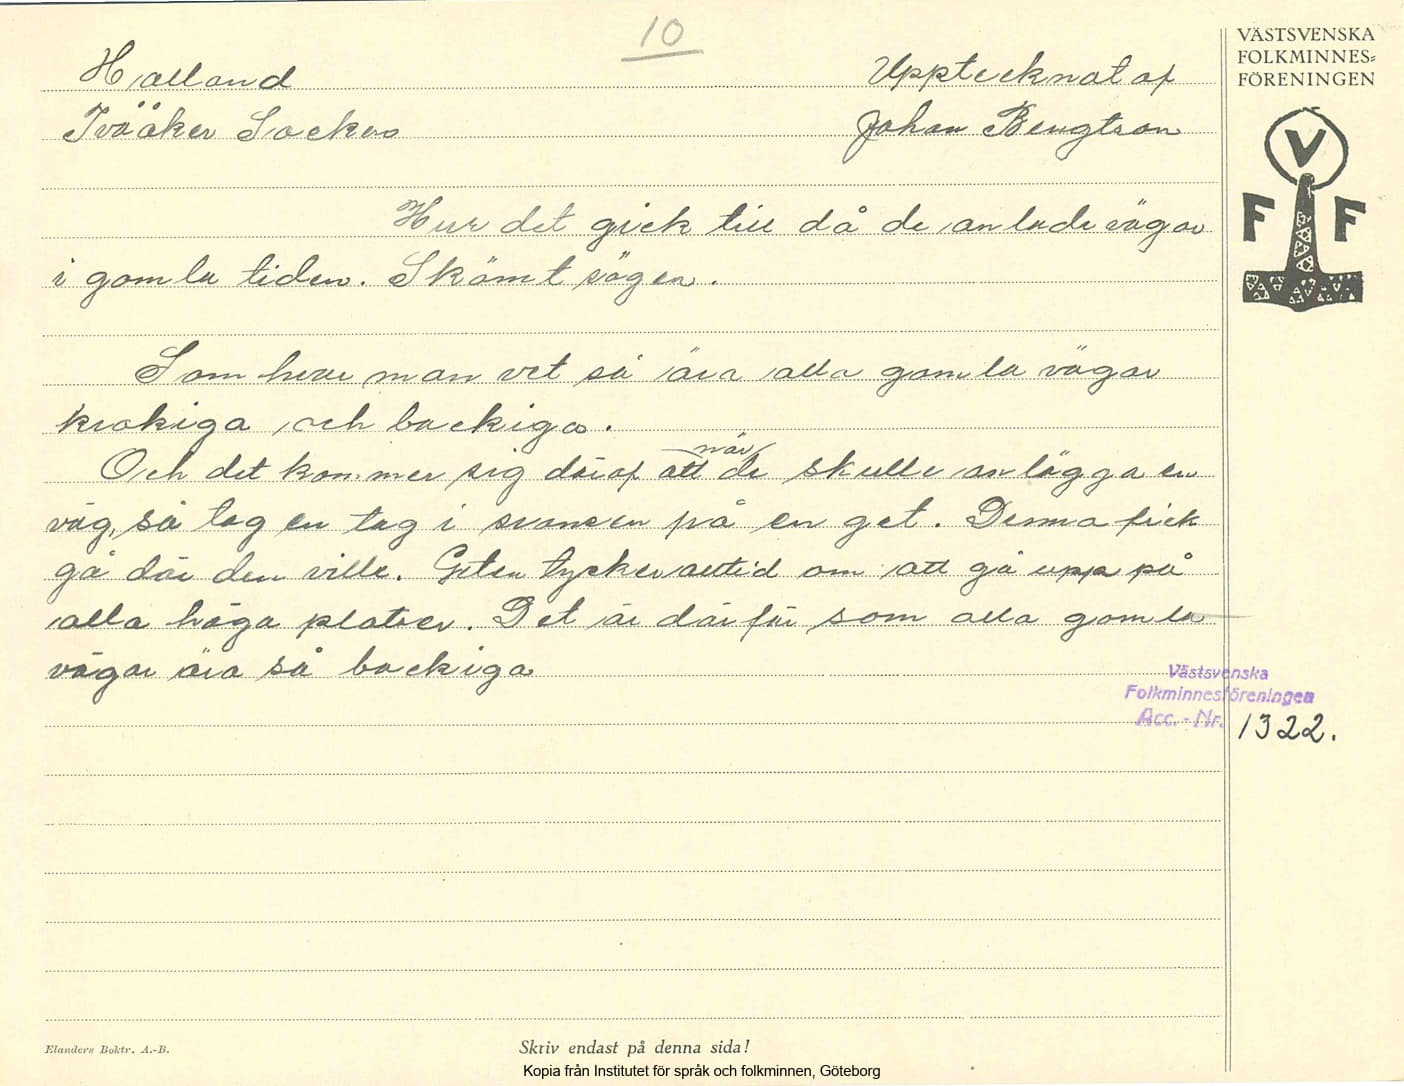 10
VÄSTSVENSKA
FOLKMINNES=
FÖRENINGEN
V
F F
Halland
Tvååker Socken
Upptecknat af
Johan Bengtson
Hur det gick till då de anlade vägar
i gamla tiden. Skämt sägen.
Som hvar man vet så ära alla gamla vägar
krokiga och backiga.
Och det kommer sig däraf att när de skulle anlägga en
väg, så tog en tag i svansen på en get. Denna fick
gå där den ville. Geten tycker alltid om att gå upp på
alla höga platser. Det är därför som alla gamla
vägar ära så backiga
Västsvenska
Folkminnesföreningen
Acc. - Nr. 1322.
Elanders Boktr. A.-B.
Skriv endast på denna sida!
Kopia från Institutet för språk och folkminnen, Göteborg